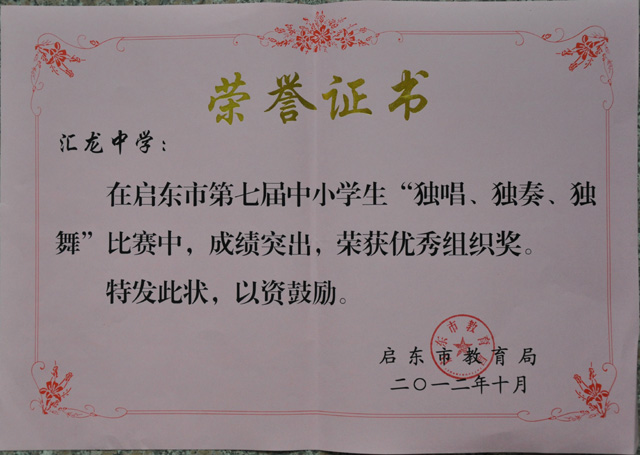 荣誉证书
汇龙中学：
在启东市第七届中小学生“独唱、独奏、独
舞”比赛中，成绩突出，荣获优秀组织奖。
特发此状，以资鼓励。
启东市教育局
二〇一二年十月